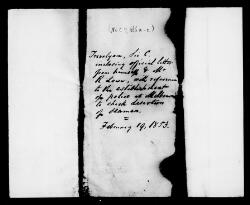 Trevelyan, Sir C.
inclosing official letter
from himself & Mr
R. Lowe, with reference
to the establishment
of police at Melbourne
to check desertion
of Seamen.
February 19, 1853.